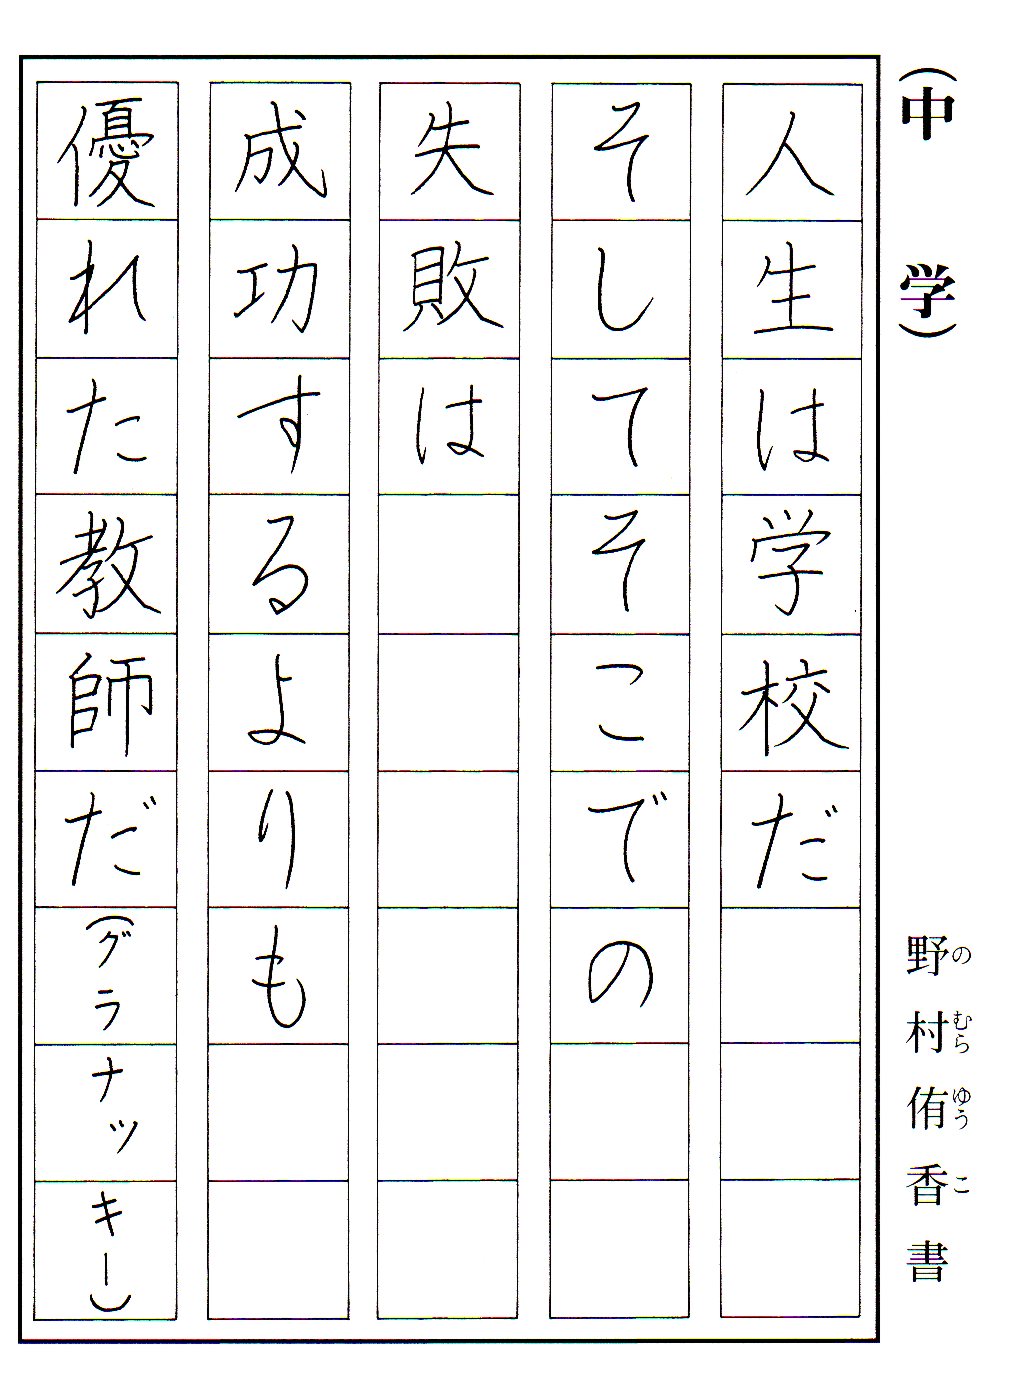 （中学）
野村侑香書
のむらゆうこ
人生は学校だ
そしてそこでの
失敗は
成功するよりも
優れた教師だ（グラナッキー）